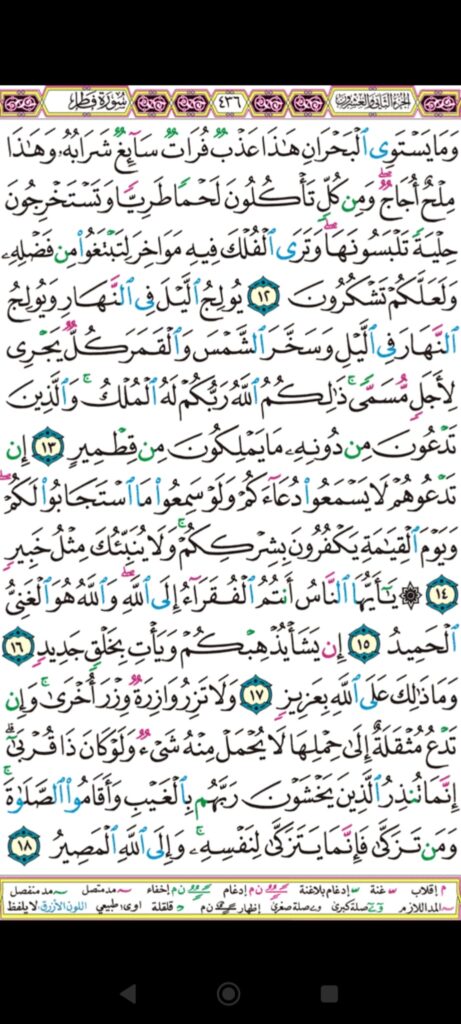 الجزء الثاني والعشرون ٤٣٦ سُورَةُ فَاطِر
وَمَا يَسْتَوِى ٱلْبَحْرَانِ هَٰذَا عَذْبٌ فُرَاتٌ سَآئِغٌ شَرَابُهُۥ وَهَٰذَا
مِلْحٌ أُجَاجٌ ۖ وَمِن كُلٍّ تَأْكُلُونَ لَحْمًا طَرِيًّا وَتَسْتَخْرِجُونَ
حِلْيَةً تَلْبَسُونَهَا ۖ وَتَرَى ٱلْفُلْكَ فِيهِ مَوَاخِرَ لِتَبْتَغُوا۟ مِن فَضْلِهِۦ
وَلَعَلَّكُمْ تَشْكُرُونَ ١٢ يُولِجُ ٱلَّيْلَ فِى ٱلنَّهَارِ وَيُولِجُ
ٱلنَّهَارَ فِى ٱلَّيْلِ وَسَخَّرَ ٱلشَّمْسَ وَٱلْقَمَرَ كُلٌّ يَجْرِى
لِأَجَلٍ مُّسَمًّى ۚ ذَٰلِكُمُ ٱللَّهُ رَبُّكُمْ لَهُ ٱلْمُلْكُ ۚ وَٱلَّذِينَ
تَدْعُونَ مِن دُونِهِۦ مَا يَمْلِكُونَ مِن قِطْمِيرٍ ١٣ إِن
تَدْعُوهُمْ لَا يَسْمَعُوا۟ دُعَآءَكُمْ وَلَوْ سَمِعُوا۟ مَا ٱسْتَجَابُوا۟ لَكُمْ ۖ
وَيَوْمَ ٱلْقِيَٰمَةِ يَكْفُرُونَ بِشِرْكِكُمْ ۚ وَلَا يُنَبِّئُكَ مِثْلُ خَبِيرٍ
١٤ ۞ يَٰٓأَيُّهَا ٱلنَّاسُ أَنتُمُ ٱلْفُقَرَآءُ إِلَى ٱللَّهِ ۖ وَٱللَّهُ هُوَ ٱلْغَنِىُّ
ٱلْحَمِيدُ ١٥ إِن يَشَأْ يُذْهِبْكُمْ وَيَأْتِ بِخَلْقٍ جَدِيدٍ ١٦
وَمَا ذَٰلِكَ عَلَى ٱللَّهِ بِعَزِيزٍ ١٧ وَلَا تَزِرُ وَازِرَةٌ وِزْرَ أُخْرَىٰ ۚ وَإِن
تَدْعُ مُثْقَلَةٌ إِلَىٰ حِمْلِهَا لَا يُحْمَلْ مِنْهُ شَىْءٌ وَلَوْ كَانَ ذَا قُرْبَىٰٓ ۗ
إِنَّمَا تُنذِرُ ٱلَّذِينَ يَخْشَوْنَ رَبَّهُم بِٱلْغَيْبِ وَأَقَامُوا۟ ٱلصَّلَوٰةَ ۚ
وَمَن تَزَكَّىٰ فَإِنَّمَا يَتَزَكَّىٰ لِنَفْسِهِۦ ۚ وَإِلَى ٱللَّهِ ٱلْمَصِيرُ ١٨
م إقلاب غنة إدغام بلاغنة ن م إدغام ن م إخفاء مد متصل مد منفصل
المد اللازم صلة كبرى صلة صغرى إظهار ن م قلقلة اوى: طبيعي اللون الأزرق: لا يلفظ